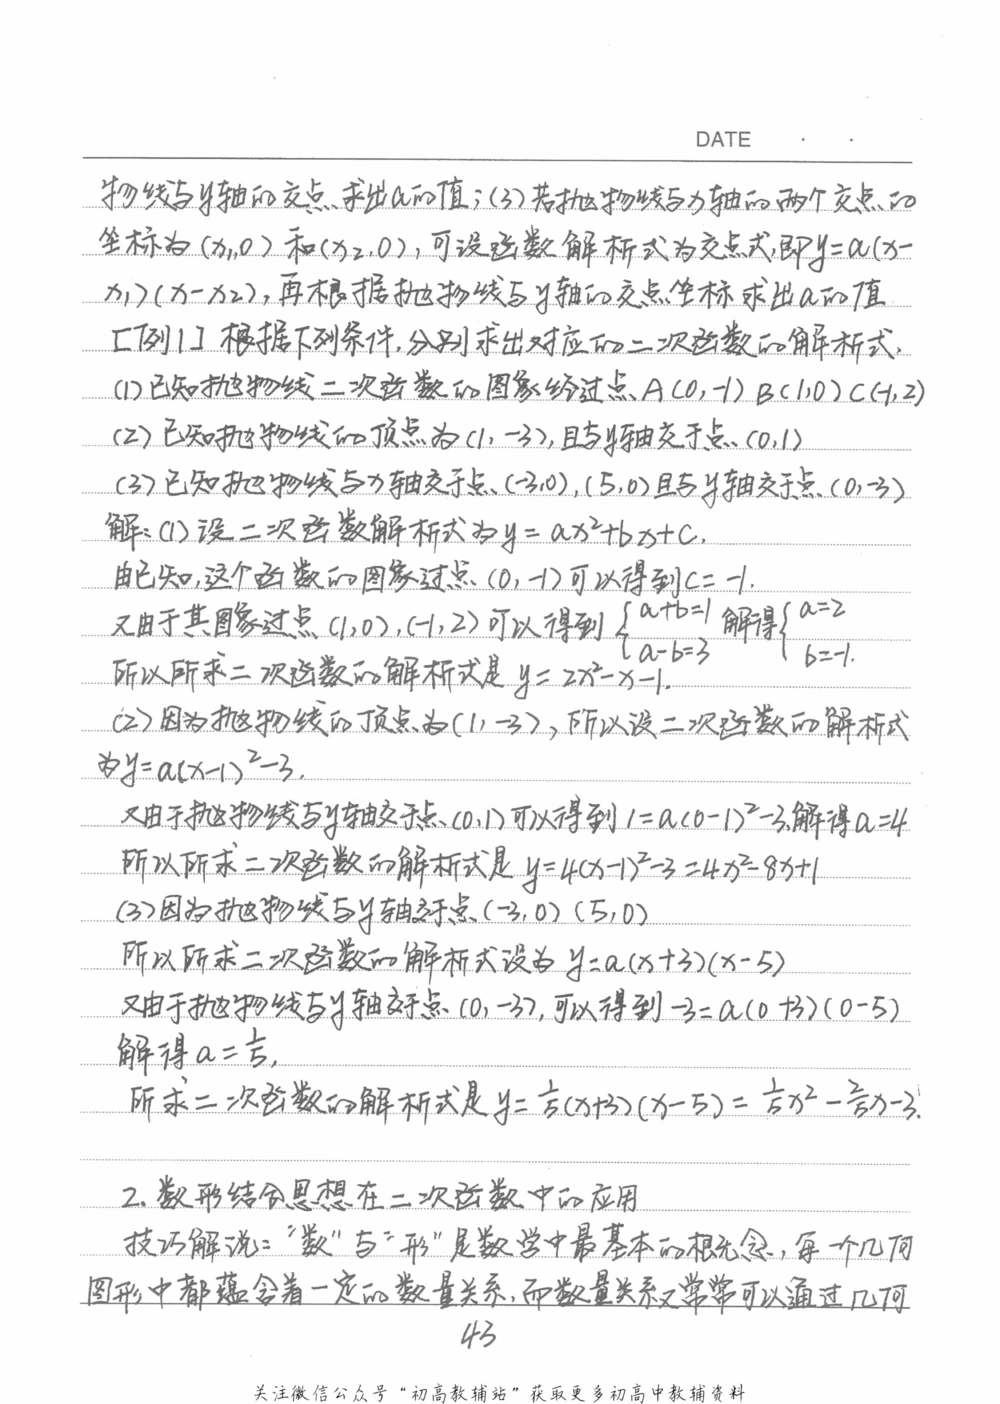 DATE · ·
物线与y轴的交点,求出a的值;(3)若抛物线与x轴的两个交点的
坐标为(x₁,0)和(x₂,0),可设函数解析式为交点式,即y=a(x-
x₁)(x-x₂),再根据抛物线与y轴的交点坐标求出a的值
[例1] 根据下列条件,分别求出对应的二次函数的解析式.
(1)已知抛物线二次函数的图象经过点A(0,-1) B(1,0) C(-1,2)
(2)已知抛物线的顶点为(1,-3),且与y轴交于点(0,1)
(3)已知抛物线与x轴交于点(-3,0),(5,0)且与y轴交于点(0,-3)
解:(1)设二次函数解析式为y=ax²+bx+c.
由已知,这个函数的图象过点(0,-1)可以得到c=-1.
又由于其图象过点(1,0),(-1,2)可以得到{a+b=1 a-b=3 解得{a=2 b=-1.
所以所求二次函数的解析式是y=2x²-x-1.
(2)因为抛物线的顶点为(1,-3),所以设二次函数的解析式
为y=a(x-1)²-3.
又由于抛物线与y轴交于点(0,1)可以得到1=a(0-1)²-3,解得a=4
所以所求二次函数的解析式是y=4(x-1)²-3=4x²-8x+1
(3)因为抛物线与y轴交于点(-3,0)(5,0)
所以所求二次函数的解析式设为y=a(x+3)(x-5)
又由于抛物线与y轴交于点(0,-3),可以得到-3=a(0+3)(0-5)
解得a=1/5,
所求二次函数的解析式是y=1/5(x+3)(x-5)=1/5x²-2/5x-3.
2.数形结合思想在二次函数中的应用
技巧解说:"数"与"形"是数学中最基本的根元念,每一个几何
图形中都蕴含着一定的数量关系,而数量关系又常常可以通过几何
43
关注微信公众号“初高教辅站”获取更多初高中教辅资料